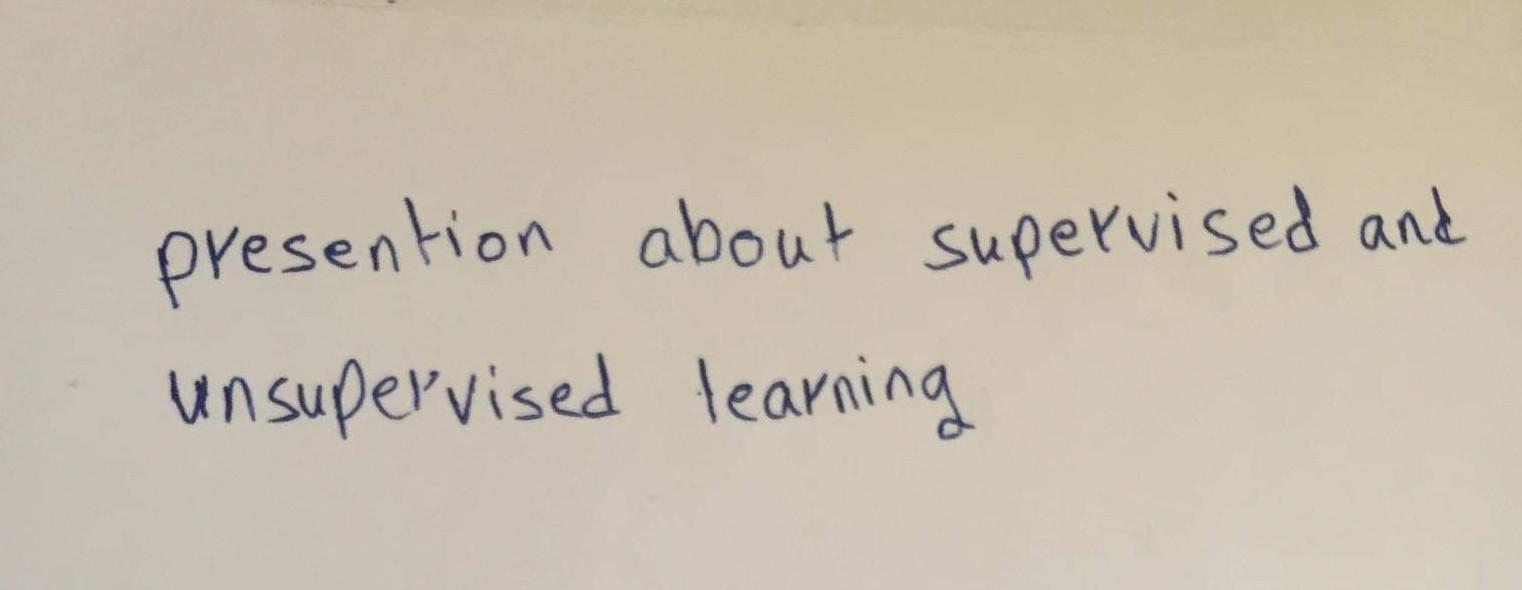 presention about supervised and
unsupervised learning